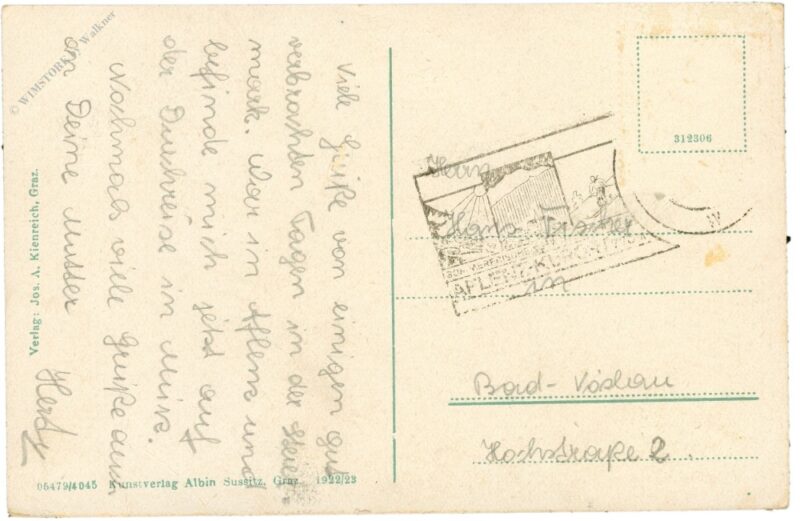 Viele Grüße von einigen gut
verbrachten Tagen in der Steier-
mark. War in Aflenz und
befinde mich jetzt auf
der Durchreise in Mürz.
Nochmals viele Grüße auch
an Deine Mutter
Herdy
Herrn
Hans Fischer
in
Bad-Vöslau
Hochstraße 2
312306
AFLENZ-KURORT
W
Verlag: Jos. A. Kienreich, Graz.
06479/4045 Kunstverlag Albin Sussitz, Graz 1922/23
© WIMSTORK E. Walkner